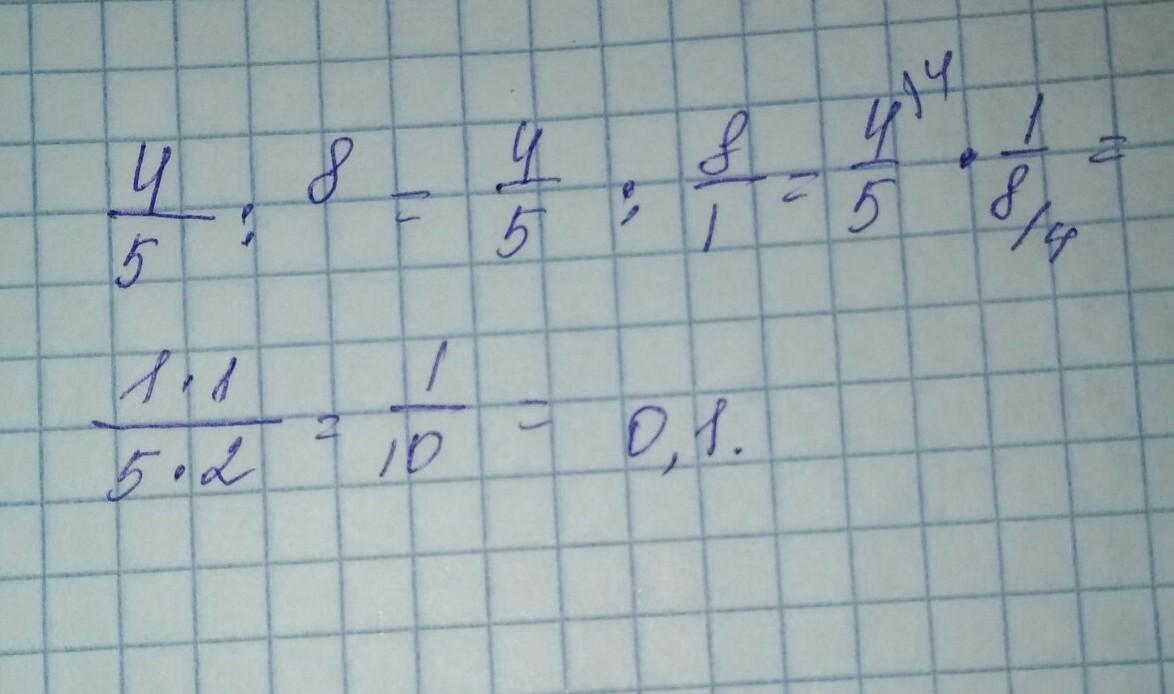 4/5 : 8 = 4/5 : 8/1 = 4/5 )4 · 1/8 /4 =
1·1/5·2 = 1/10 = 0,1.